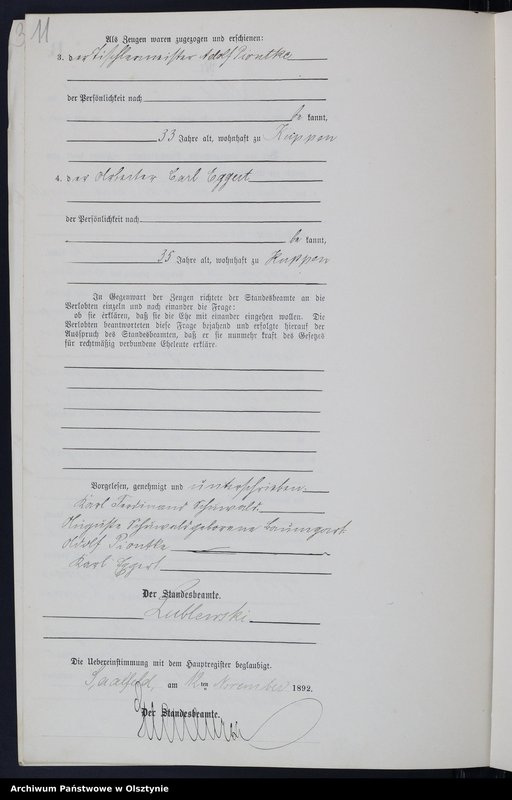 11
Als Zeugen waren zugezogen und erschienen:
3. der Tischlermeister Adolf Piontke
der Persönlichkeit nach
be kannt,
33 Jahre alt, wohnhaft zu Kuppen
4. der Arbeiter Carl Eggert
der Persönlichkeit nach
be kannt,
35 Jahre alt, wohnhaft zu Kuppen
In Gegenwart der Zeugen richtete der Standesbeamte an die
Verlobten einzeln und nach einander die Frage:
ob sie erklären, daß sie die Ehe mit einander eingehen wollen. Die
Verlobten beantworteten diese Frage bejahend und erfolgte hierauf der
Ausspruch des Standesbeamten, daß er sie nunmehr kraft des Gesetzes
für rechtmäßig verbundene Eheleute erkläre.
Vorgelesen, genehmigt und unterschrieben.
Karl Ferdinand Schuwald
Auguste Schuwald geborene Baumgart
Adolf Piontke
Karl Eggert
Der Standesbeamte.
Lublewski
Die Uebereinstimmung mit dem Hauptregister beglaubigt.
Saalfeld, am 12ten November 1892.
Der Standesbeamte.
Archiwum Państwowe w Olsztynie